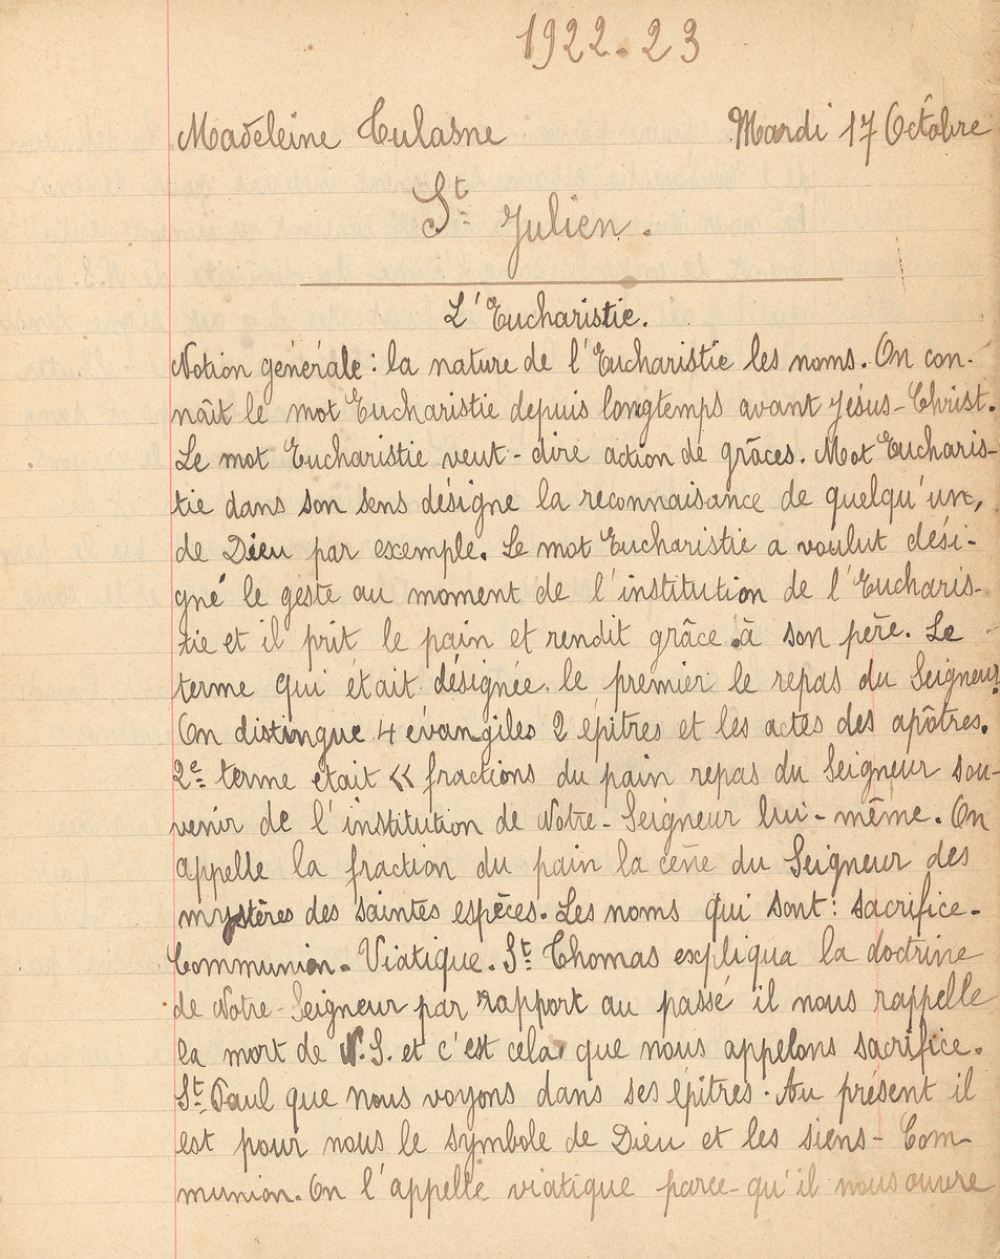 1922-23
Madeleine Culasne Mardi 17 Octobre
St Julien.
L'Eucharistie.
Notion générale : la nature de l'Eucharistie les noms. On con-
naît le mot Eucharistie depuis longtemps avant Jésus-Christ.
Le mot Eucharistie veut-dire action de grâces. Mot Eucharis-
tie dans son sens désigne la reconnaisance de quelqu'un,
de Dieu par exemple. Le mot Eucharistie a voulut dési-
gné le geste au moment de l'institution de l'Eucharis-
tie et il prit le pain et rendit grâce à son père. Le
terme qui était désignée le premier le repas du Seigneur.
On distingue 4 évangiles 2 épîtres et les actes des apôtres.
2e terme était << fractions du pain repas du Seigneur sou-
venir de l'institution de Notre-Seigneur lui-même. On
appelle la fraction du pain la cène du Seigneur des
mystères des saintes espèces. Les noms qui sont : sacrifice-
Communion. Viatique. St Thomas expliqua la doctrine
de Notre-Seigneur par rapport au passé il nous rappelle
la mort de N.S. et c'est cela que nous appelons sacrifice.
St Paul que nous voyons dans ses épitres. Au présent il
est pour nous le symbole de Dieu et les siens- Com-
munion. On l'appelle viatique parce-qu'il nous ouvre